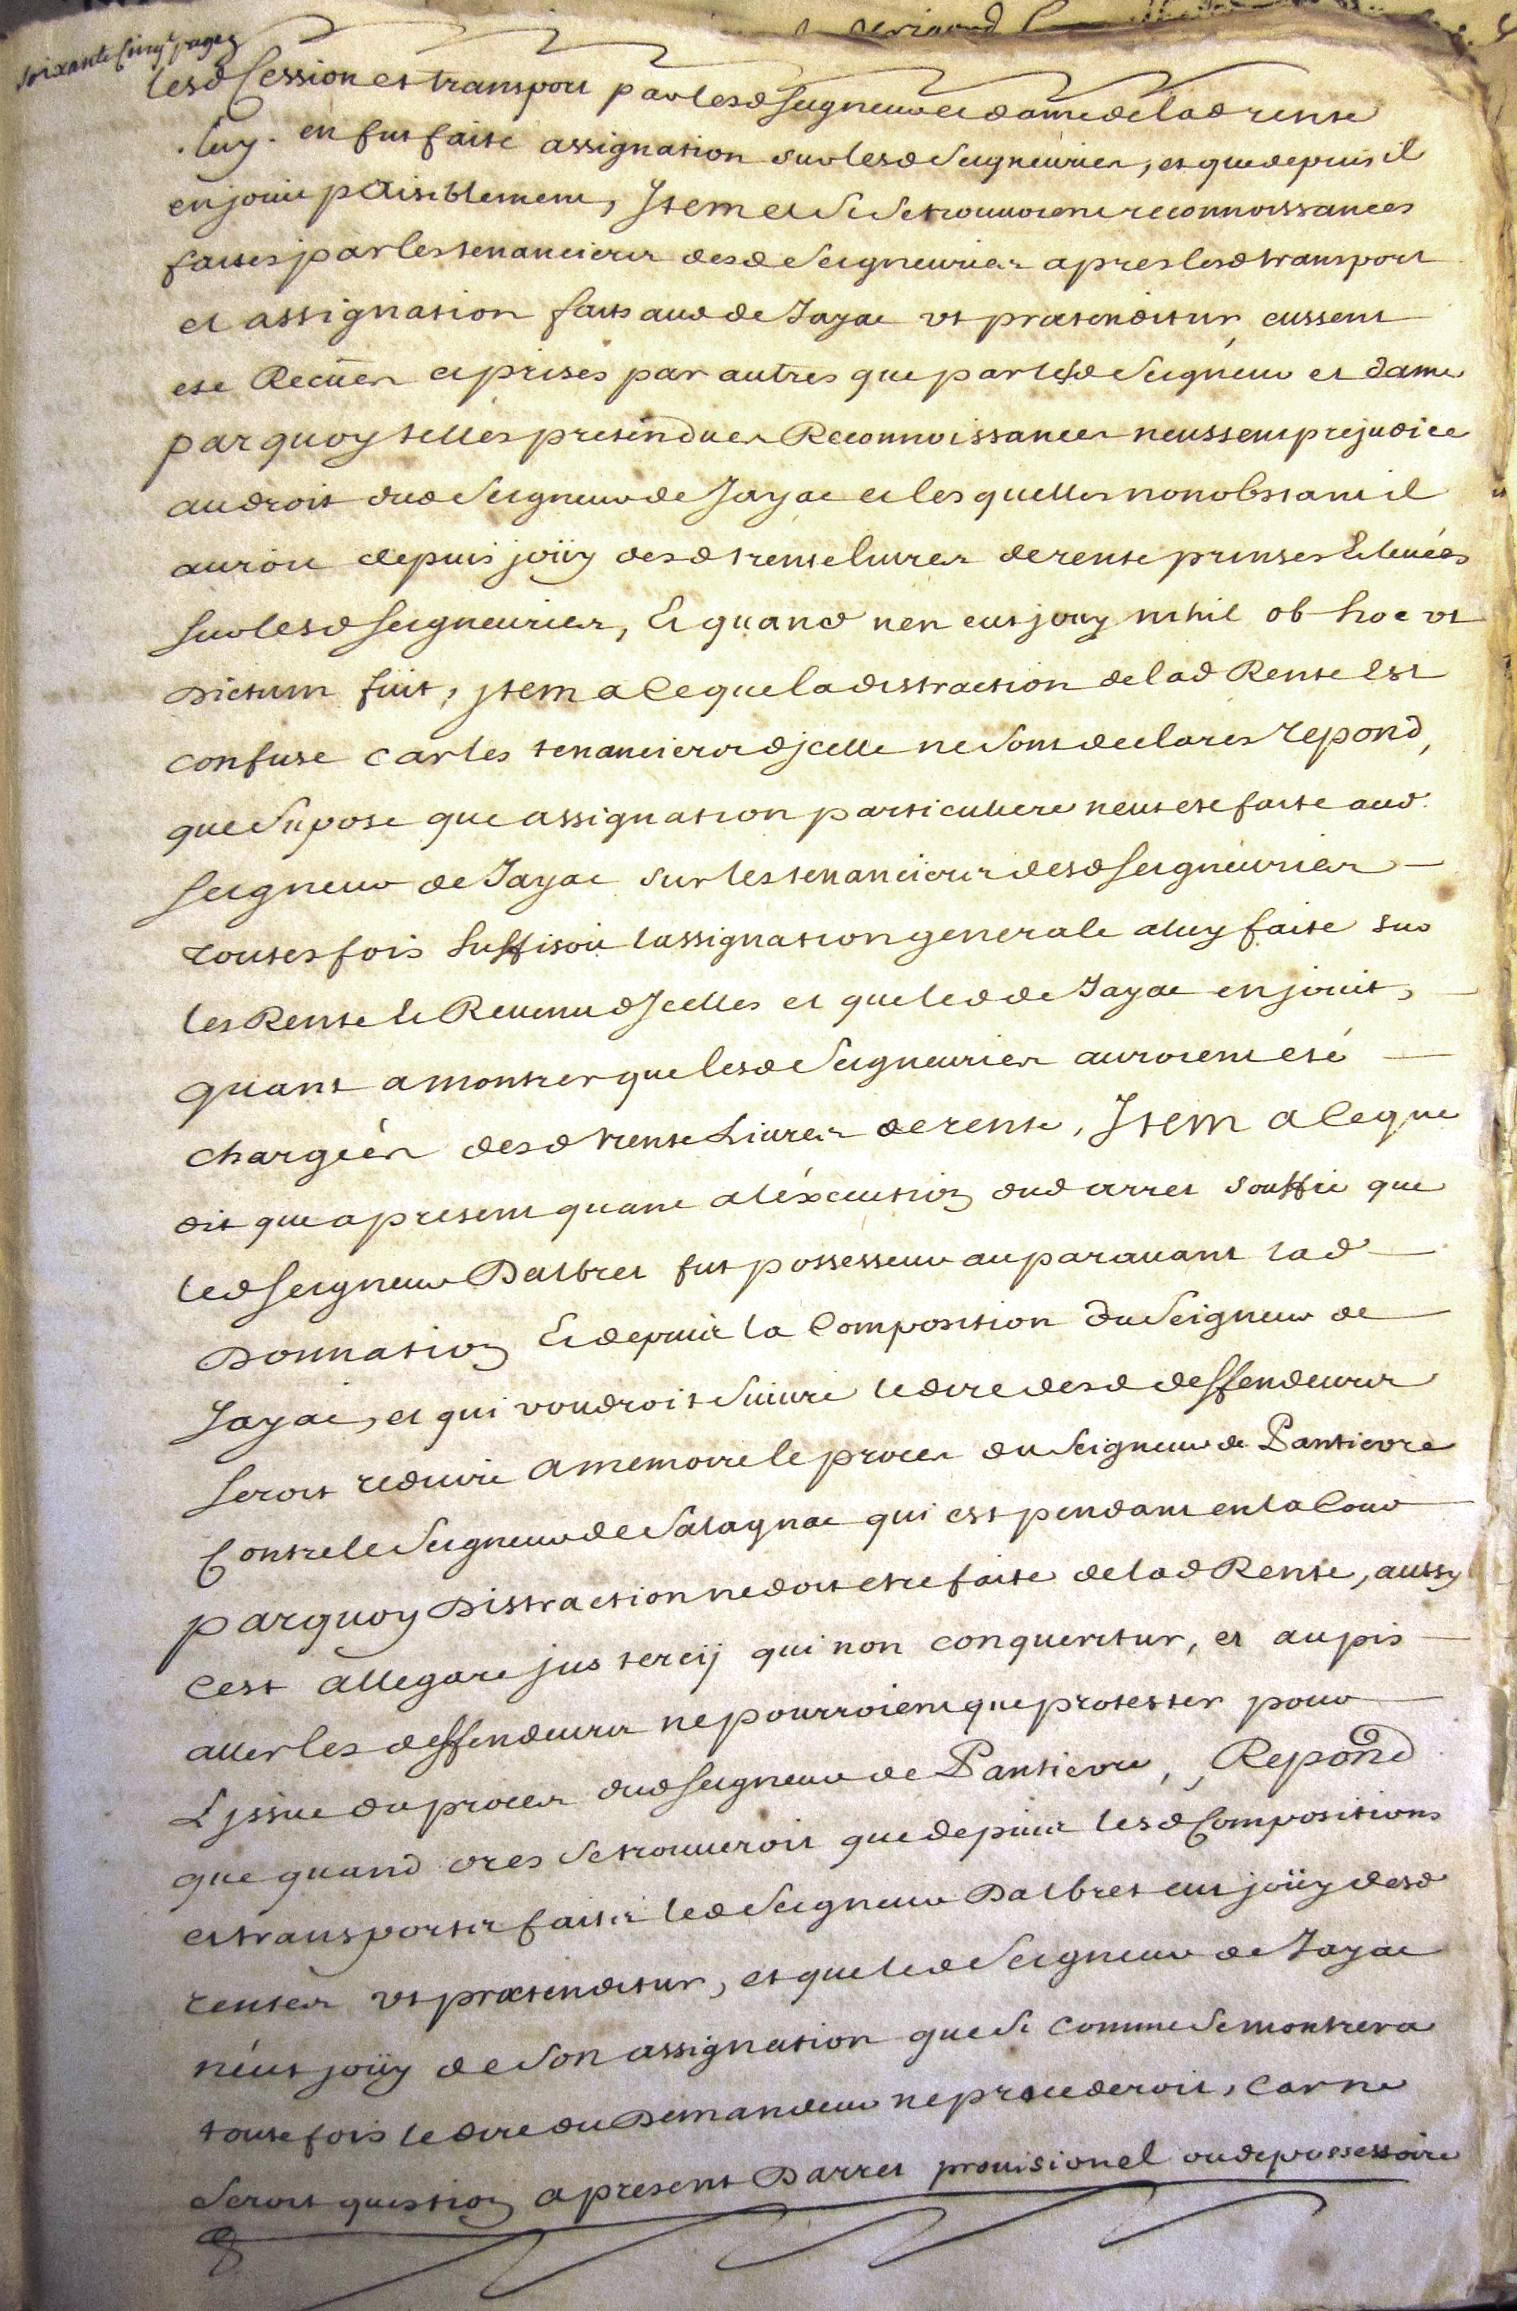 soixante cinq pages
lesd cession et transport par lesd seigneur et dame de lad rente
luy en fut faite assignation sur lesd seigneuries, et que depuis il
en jouit paisiblement, Item et si se trouvoient reconnoissances
faites par les tenanciers desd seigneuries apres lesd transport
et assignation faits aud de Jayac ut prætenditur eussent
ete Recües et prises par autres que par lesd seigneur et dame
par quoy telles pretendues Reconnoissances neussent prejudice
au droit dud seigneur de Jayac et les quelles nonobstant il
auroit depuis joüy desd trente livres de rente prinses et levées
sur lesd seigneuries, Et quand nen eut jouy nihil ob hoc ut
Dictum fuit, jtem a ce que la distraction de lad Rente est
confuse car les tenanciers djcelle ne sont declarés repond,
que supose que assignation particuliere neut ete faite aud
seigneur de Jayac sur les tenanciers desd seigneuries
toutes fois suffisoit lassignation generale a luy faite sur
les Rente le Revenu dJcelles et que led de Jayac en jouit,
quant a montrer que lesd seigneuries auroient eté
chargées desd trente Livres de rente, Item a ce que
dit que a present quant a léxecution dud arret souffit que
led seigneur Dalbret fut possesseur auparavant lad
Donnation Et depuis la Composition du seigneur de
Jayac, et qui voudroit suivre le dire desd deffendeurs
seroit reduire a memoire le proces du seigneur de Pantievre
Contre le seigneur de Salagnac qui est pendant en la Cour
par quoy Distraction ne doit etre faite de lad Rente, aussy
cest allegare jus tercij qui non conqueritur, et au pis
aller les deffendeurs ne pourroient que protester pour
Lissue du proces dud seigneur de Pantievre, Repond
que quand ores se trouveroit que depuis lesd Compositions
et transports faits led seigneur Dalbret eut joüy desd
rentes ut prætenditur, et que led seigneur de Jayac
néut joüy de son assignation que si comme se montrera
toute fois le dire du Demandeur ne procederoit, car ne
seroit question a present Darret provisionel ou de possessoire